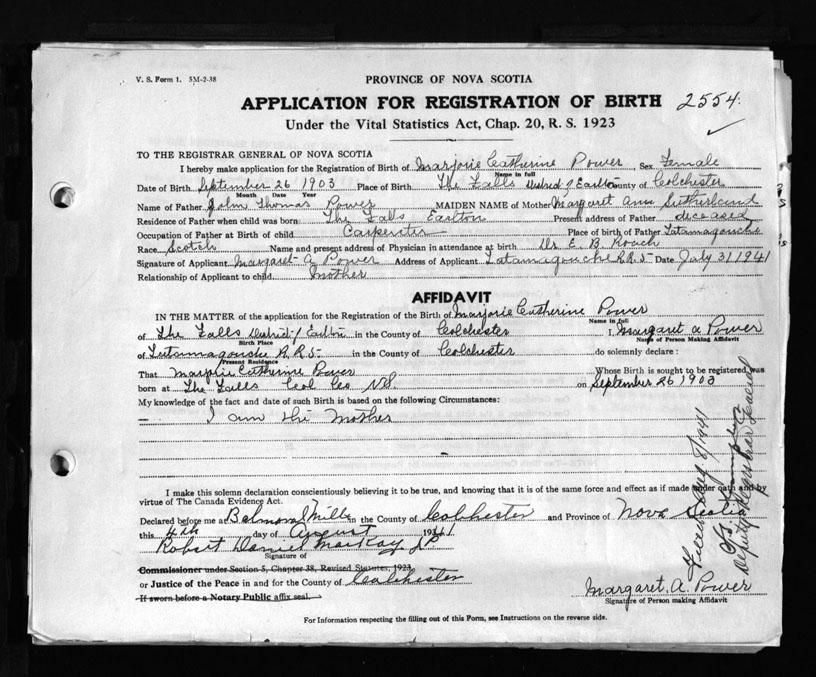 V. S. Form 1. 5M-2-38
PROVINCE OF NOVA SCOTIA
APPLICATION FOR REGISTRATION OF BIRTH 2554.
Under the Vital Statistics Act, Chap. 20, R. S. 1923
TO THE REGISTRAR GENERAL OF NOVA SCOTIA
I hereby make application for the Registration of Birth of Marjorie Catherine Power Sex Female
Name in full
Date of Birth September 26 1903 Place of Birth The Falls District of Earltown County of Colchester
Month Date Year
Name of Father John Thomas Power MAIDEN NAME of Mother Margaret Ann Sutherland
Residence of Father when child was born The Falls Earlton Present address of Father deceased
Occupation of Father at Birth of child Carpenter Place of Birth of Father Tatamagouche
Race Scotch Name and present address of Physician in attendance at birth Dr. E. B. Roach
Signature of Applicant Margaret A Power Address of Applicant Tatamagouche R.R. 5 Date July 31 1941
Relationship of Applicant to child Mother
AFFIDAVIT
IN THE MATTER of the application for the Registration of the Birth of Marjorie Catherine Power
Name in full
of The Falls District of Earlton in the County of Colchester I, Margaret A Power
Birth Place Name of Person Making Affidavit
of Tatamagouche R.R.5 in the County of Colchester do solemnly declare :
Present Residence
That Marjorie Catherine Power Whose Birth is sought to be registered, was
born at The Falls Col Co N.S. on September 26 1903
My knowledge of the fact and date of such Birth is based on the following Circumstances:
I am the Mother
I make this solemn declaration conscientiously believing it to be true, and knowing that it is of the same force and effect as if made under oath and by
virtue of The Canada Evidence Act.
Declared before me at Balmoral Mills in the County of Colchester and Province of Nova Scotia
this 4th day of August 1941
Robert Daniel MacKay J.P.
Signature of
Commissioner under Section 5, Chapter 38, Revised Statutes, 1923
or Justice of the Peace in and for the County of Colchester
If sworn before a Notary Public affix seal.
Margaret. A. Power
Signature of Person making Affidavit
For Information respecting the filling out of this Form, see Instructions on the reverse side.
Filed Aug 8/1941
Deputy Registrar General